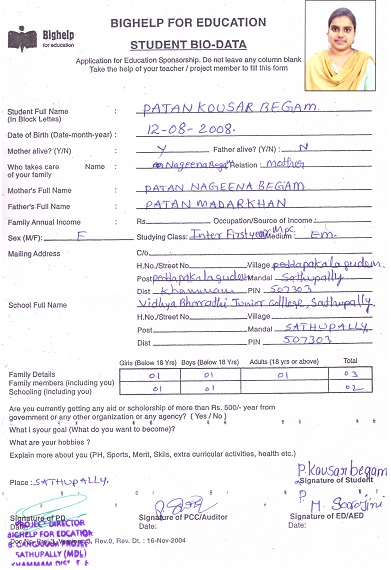 BIGHELP FOR EDUCATION
Bighelp
for education
STUDENT BIO-DATA
Application for Education Sponsorship. Do not leave any column blank
Take the help of your teacher / project member to fill this form
Student Full Name : PATAN KOUSAR BEGAM.
(In Block Letters)
Date of Birth (Date-month-year) : 12-08-2008.
Mother alive? (Y/N) : Y Father alive? (Y/N) : N
Who takes care Name : Nageena Begam Relation : mother
of your family
Mother's Full Name : PATAN NAGEENA BEGAM
Father's Full Name : PATAN MADARKHAN
Family Annual Income : Rs. Occupation/Source of Income :
Sex (M/F): F Studying Class: Inter First year MPC Medium : Em.
Mailing Address C/o
H.No./Street No Village peddapakalagudem.
Post peddapakalagudem Mandal Sathupally
Dist Khammam PIN 507303
School Full Name Vidhya Bharathi Junior College, Sathupally
H.No./Street No. Village
Post Mandal SATHUPALLY
Dist PIN 507303
Girls (Below 18 Yrs) Boys (Below 18 Yrs) Adults (18 yrs / above) Total
Family Details
Family members (including you) 01 01 01 03
Schooling (including you) 01 01 02
Are you currently getting any aid or scholarship of more than Rs. 500/- year from
government or any other organization or any agency? ( Yes / No )
What i syour goal (What do you want to become)?
What are your hobbies ?
Explain more about you (PH, Sports, Merit, Skils, extra curricular activities, health etc.)
P. Kousar begam
Place : SATHUPALLY. Signature of Student
M. Sarojini
Signature of PD Signature of PCC/Auditor Signature of ED/AED
Date: Date: Date:
PROJECT DIRECTOR
BIGHELP FOR EDCATION
B. GANGARAM PROJECT
Rev.0, Rev. Dt. : 16-Nov-2004
SATHUPALLY (MDL)
KHAMMAM DIST